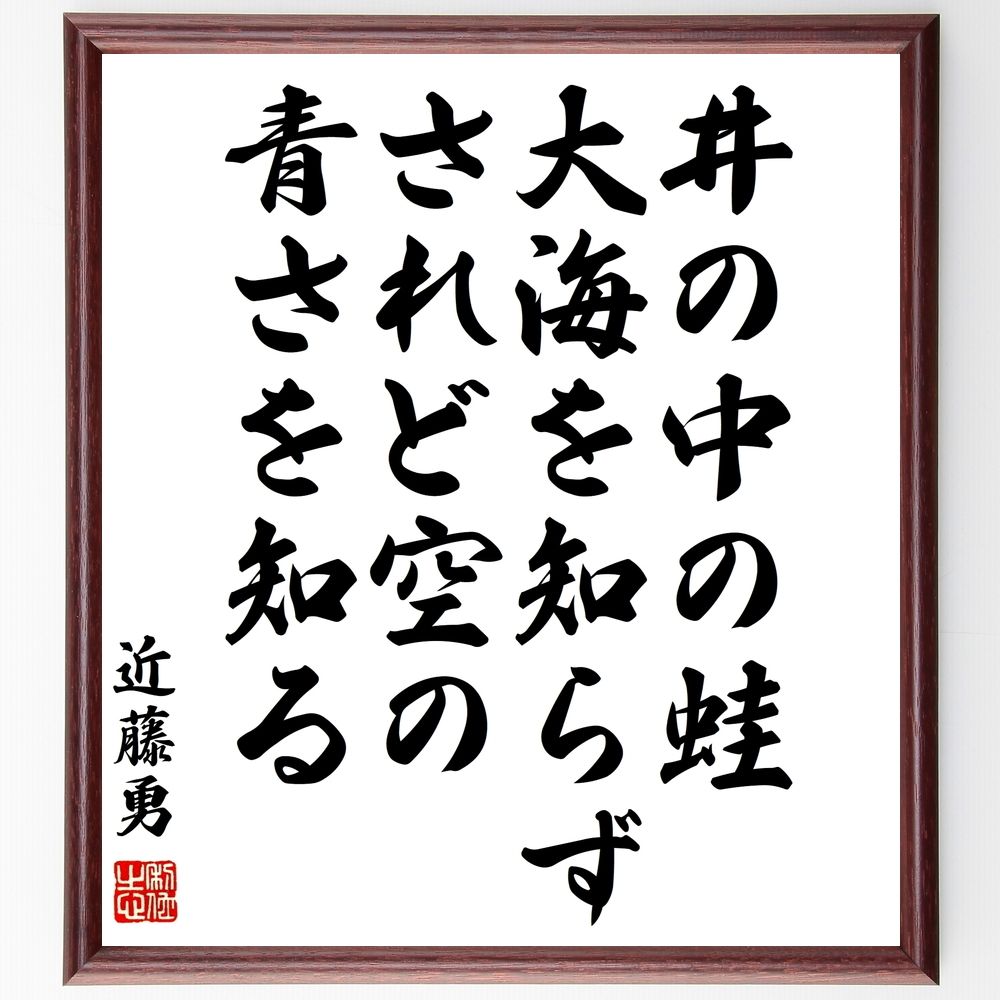 井の中の蛙
大海を知らず
されど空の
青さを知る
近藤勇